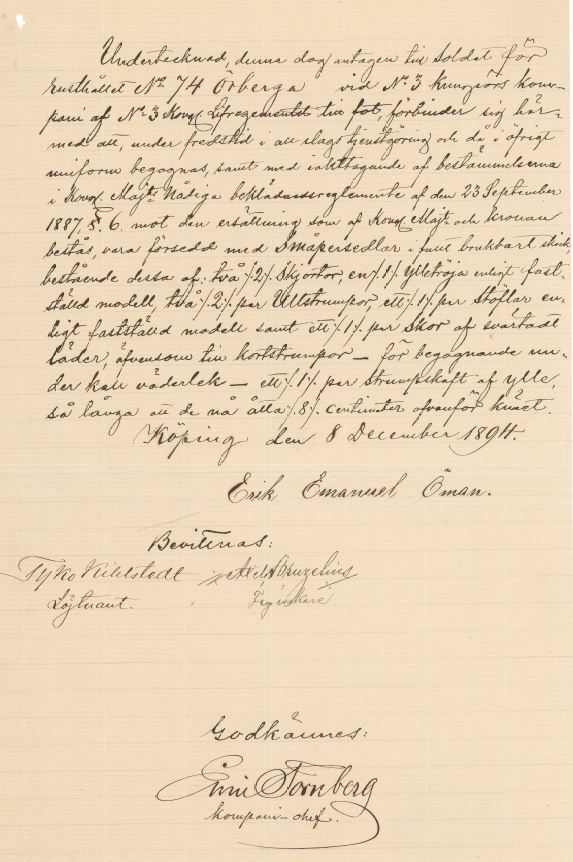 Undertecknad, denna dag antagen till soldat för
rusthållet No 74 Örberga vid No 3 Kungsörs kom-
pani af No 3 Kongl. Lifregementet till fot, förbinder sig här-
med att, under fredstid i all slags tjenstgöring och då i öfrigt
uniform begagnas, samt med iakttagande af bestämmelserna
i Kongl. Majts Nådiga beklädnadsreglemente af den 23 September
1887, §. 6. mot den ersättning som af Kongl. Majt och kronan
bestås, vara försedd med Småpersedlar i fullt brukbart skick
bestående dessa af: två /.2/. Skjortor, en /.1/. Ylletröja enligt fast-
ställd modell, två /.2/. par Ullstrumpor, ett /.1/. par Stöflar en-
ligt fastställd modell samt ett /.1/. par Skor af svärtadt
läder, äfvensom till kortstrumpor — för begagnande un-
der kall väderlek — ett /.1/. par strumpskaft af ylle,
så långa att de nå åtta /.8/. centimeter ofvanför knäet.
Köping den 8 December 1894.
Erik Emanuel Öman.
Bevittnas:
Tyko Kihlstedt Axel
Löjtnant.
Godkännes:
Emil Tornberg
Kompani-chef.